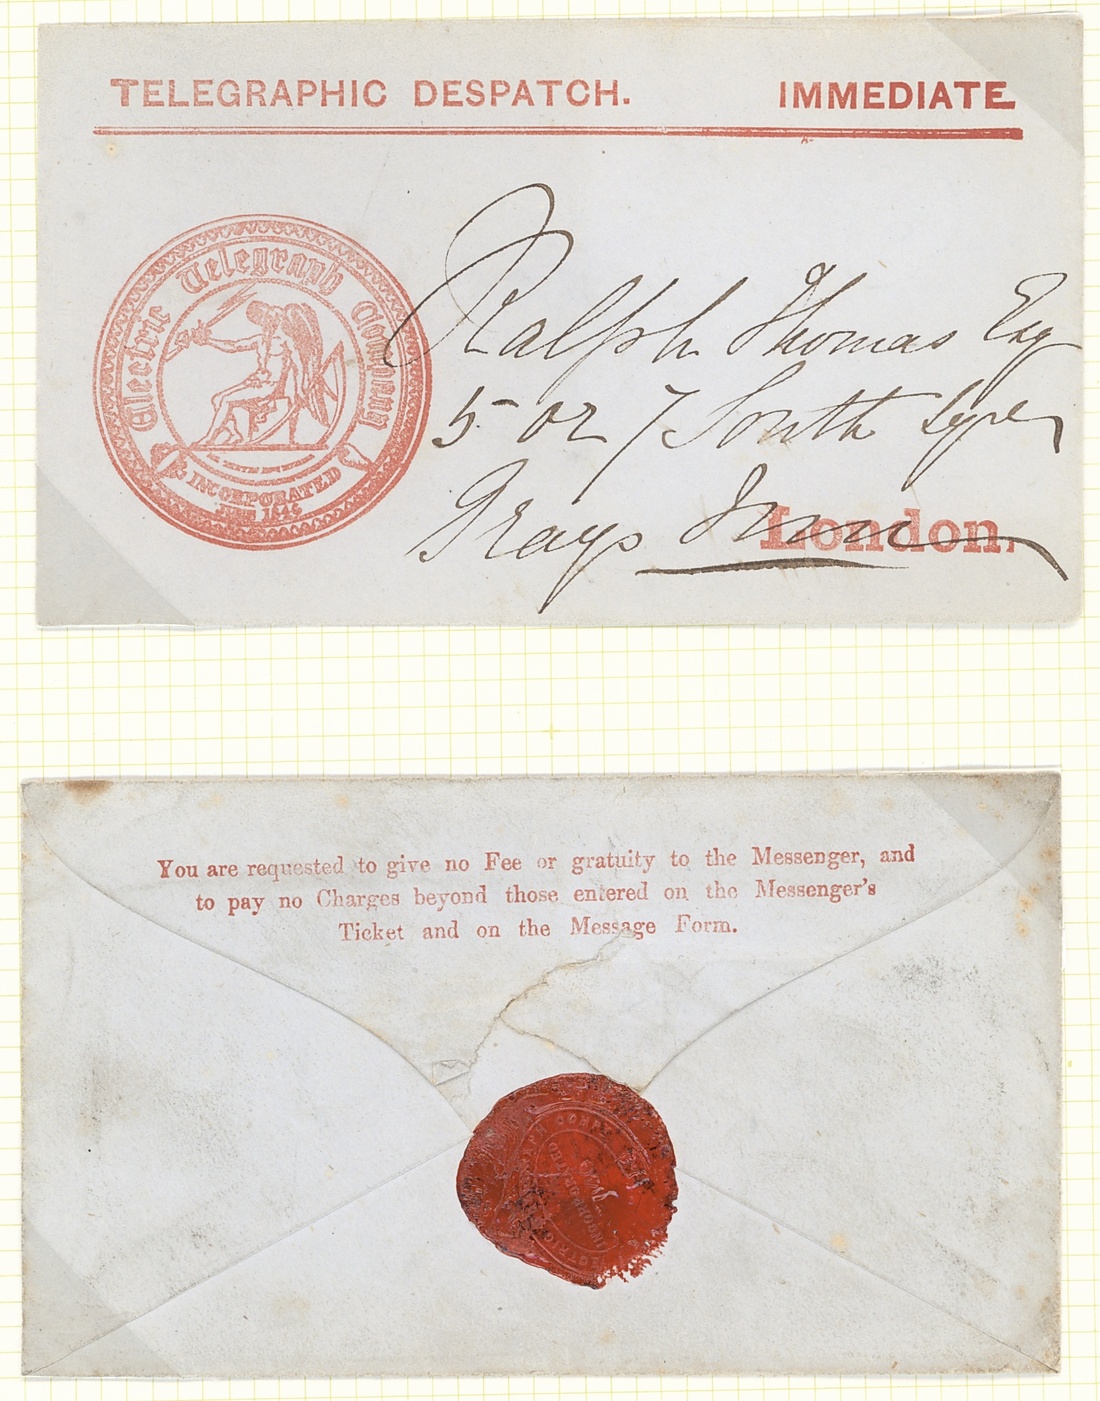 TELEGRAPHIC DESPATCH. IMMEDIATE.
Electric Telegraph Company
INCORPORATED
1846
Ralph Thomas Esq
5 or 7 South Sqre
Grays Inn
London.
You are requested to give no Fee or gratuity to the Messenger, and
to pay no Charges beyond those entered on the Messenger's
Ticket and on the Message Form.
INCORPORATED